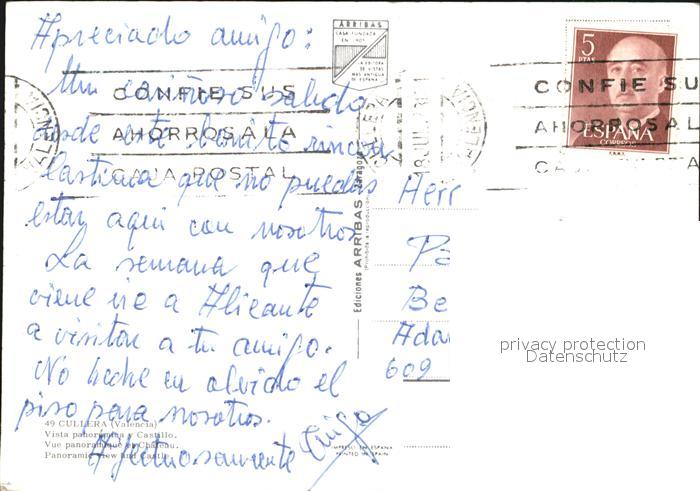 Apreciado amigo:
Un cariñoso saludo
desde este bonito rincon
lastima que no puedas
estar aqui con nosotros
La semana que
viene ire a Alicante
a visitar a tu amigo.
No heche en olvido el
piso para nosotros.
Afectuosamente
49 CULLERA (Valencia)
Vista panorámica y Castillo.
Vue panoramique et Château.
Panoramic View and Castle.
ARRIBAS
CASA FUNDADA
EN
LA EDITORA
DE VISTAS
MAS ANTIGUA
DE ESPAÑA
CONFIE SUS
AHORROS A LA
CAJA POSTAL
Ediciones ARRIBAS Zaragoza
(Prohibida la reproducción)
IMPRESO EN ESPAÑA
PRINTED IN SPAIN
Herr
Pa
Be
Ada
609
5
PTAS
ESPAÑA
CORREOS
CONFIE SU
AHORROS A L
CA
privacy protection
Datenschutz